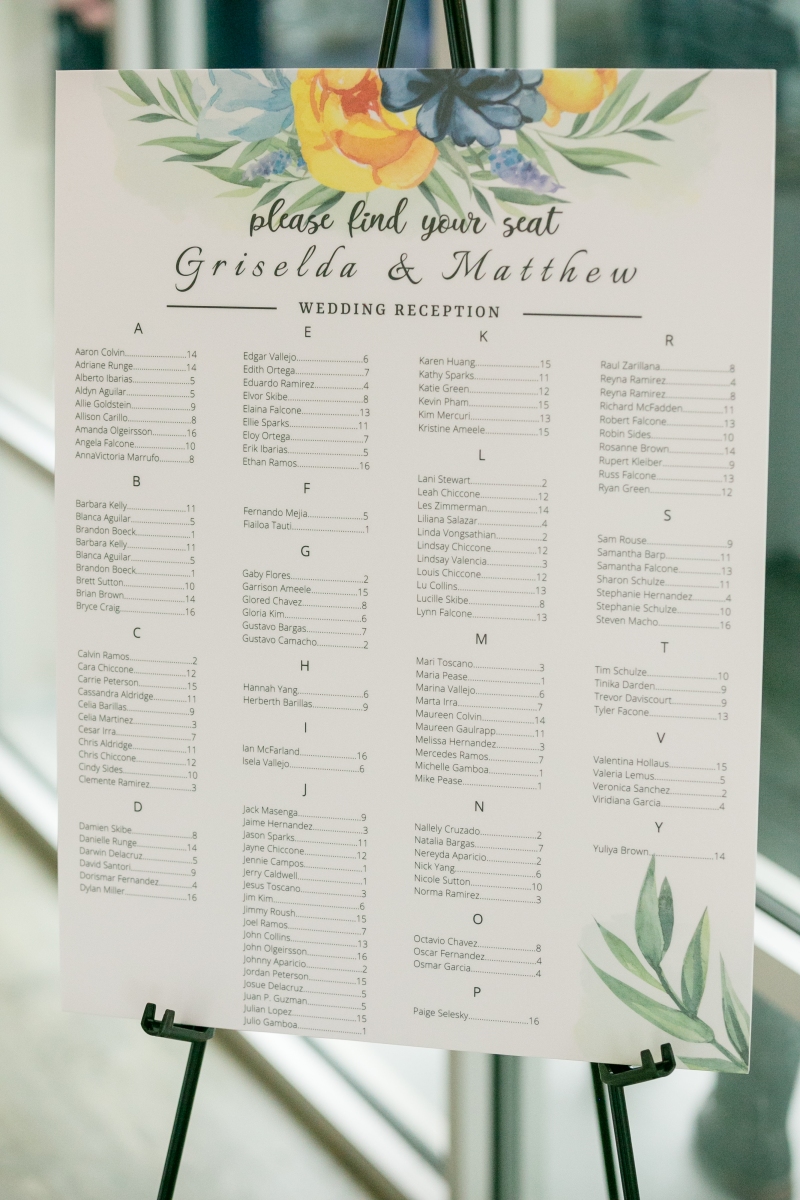 please find your seat
Griselda & Matthew
WEDDING RECEPTION
A
Aaron Colvin 14
Adriane Runge 14
Alberto Ibarias 5
Aldyn Aguilar 5
Allie Goldstein 9
Allison Carillo 8
Amanda Olgeirsson 16
Angela Falcone 10
AnnaVictoria Marrufo 8
B
Barbara Kelly 11
Bianca Aguilar 5
Brandon Boeck 1
Barbara Kelly 11
Bianca Aguilar 5
Brandon Boeck 1
Brett Sutton 10
Brian Brown 14
Bryce Craig 16
C
Calvin Ramos 2
Cara Chiccone 12
Carrie Peterson 15
Cassandra Aldridge 11
Celia Barillas 9
Celia Martinez 3
Cesar Irra 7
Chris Aldridge 11
Chris Chiccone 12
Cindy Sides 10
Clemente Ramirez 3
D
Damien Skibe 8
Danielle Runge 14
Darwin Delacruz 5
David Santori 9
Dorismar Fernandez 4
Dylan Miller 16
E
Edgar Vallejo 6
Edith Ortega 7
Eduardo Ramirez 4
Elvor Skibe 8
Elaina Falcone 13
Ellie Sparks 11
Eloy Ortega 7
Erik Ibarias 5
Ethan Ramos 16
F
Fernando Mejia 5
Fiailoa Tauti 1
G
Gaby Flores 2
Garrison Ameele 15
Glored Chavez 8
Gloria Kim 6
Gustavo Bargas 7
Gustavo Camacho 2
H
Hannah Yang 6
Herberth Barillas 9
I
Ian McFarland 16
Isela Vallejo 6
J
Jack Masenga 9
Jaime Hernandez 3
Jason Sparks 11
Jayne Chiccone 12
Jennie Campos 1
Jerry Caldwell 1
Jesus Toscano 3
Jim Kim 6
Jimmy Roush 15
Joel Ramos 7
John Collins 13
John Olgeirsson 16
Johnny Aparicio 2
Jordan Peterson 15
Josue Delacruz 5
Juan P. Guzman 5
Julian Lopez 15
Julio Gamboa 1
K
Karen Huang 15
Kathy Sparks 11
Katie Green 12
Kevin Pham 15
Kim Mercuri 13
Kristine Ameele 15
L
Lani Stewart 2
Leah Chiccone 12
Les Zimmerman 14
Liliana Salazar 4
Linda Vongsathian 2
Lindsay Chiccone 12
Lindsay Valencia 3
Louis Chiccone 12
Lu Collins 13
Lucille Skibe 8
Lynn Falcone 13
M
Mari Toscano 3
Maria Pease 1
Marina Vallejo 6
Marta Irra 7
Maureen Colvin 14
Maureen Gaulrapp 11
Melissa Hernandez 3
Mercedes Ramos 7
Michelle Gamboa 1
Mike Pease 1
N
Nallely Cruzado 2
Natalia Bargas 7
Nereyda Aparicio 2
Nick Yang 6
Nicole Sutton 10
Norma Ramirez 3
O
Octavio Chavez 8
Oscar Fernandez 4
Osmar Garcia 4
P
Paige Selesky 16
R
Raul Zarillana 8
Reyna Ramirez 4
Reyna Ramirez 8
Richard McFadden 11
Robert Falcone 13
Robin Sides 10
Rosanne Brown 14
Rupert Kleiber 9
Russ Falcone 13
Ryan Green 12
S
Sam Rouse 9
Samantha Barp 11
Samantha Falcone 13
Sharon Schulze 11
Stephanie Hernandez 4
Stephanie Schulze 10
Steven Macho 16
T
Tim Schulze 10
Tinika Darden 9
Trevor Daviscourt 9
Tyler Facone 13
V
Valentina Hollaus 15
Valeria Lemus 5
Veronica Sanchez 2
Viridiana Garcia 4
Y
Yuliya Brown 14